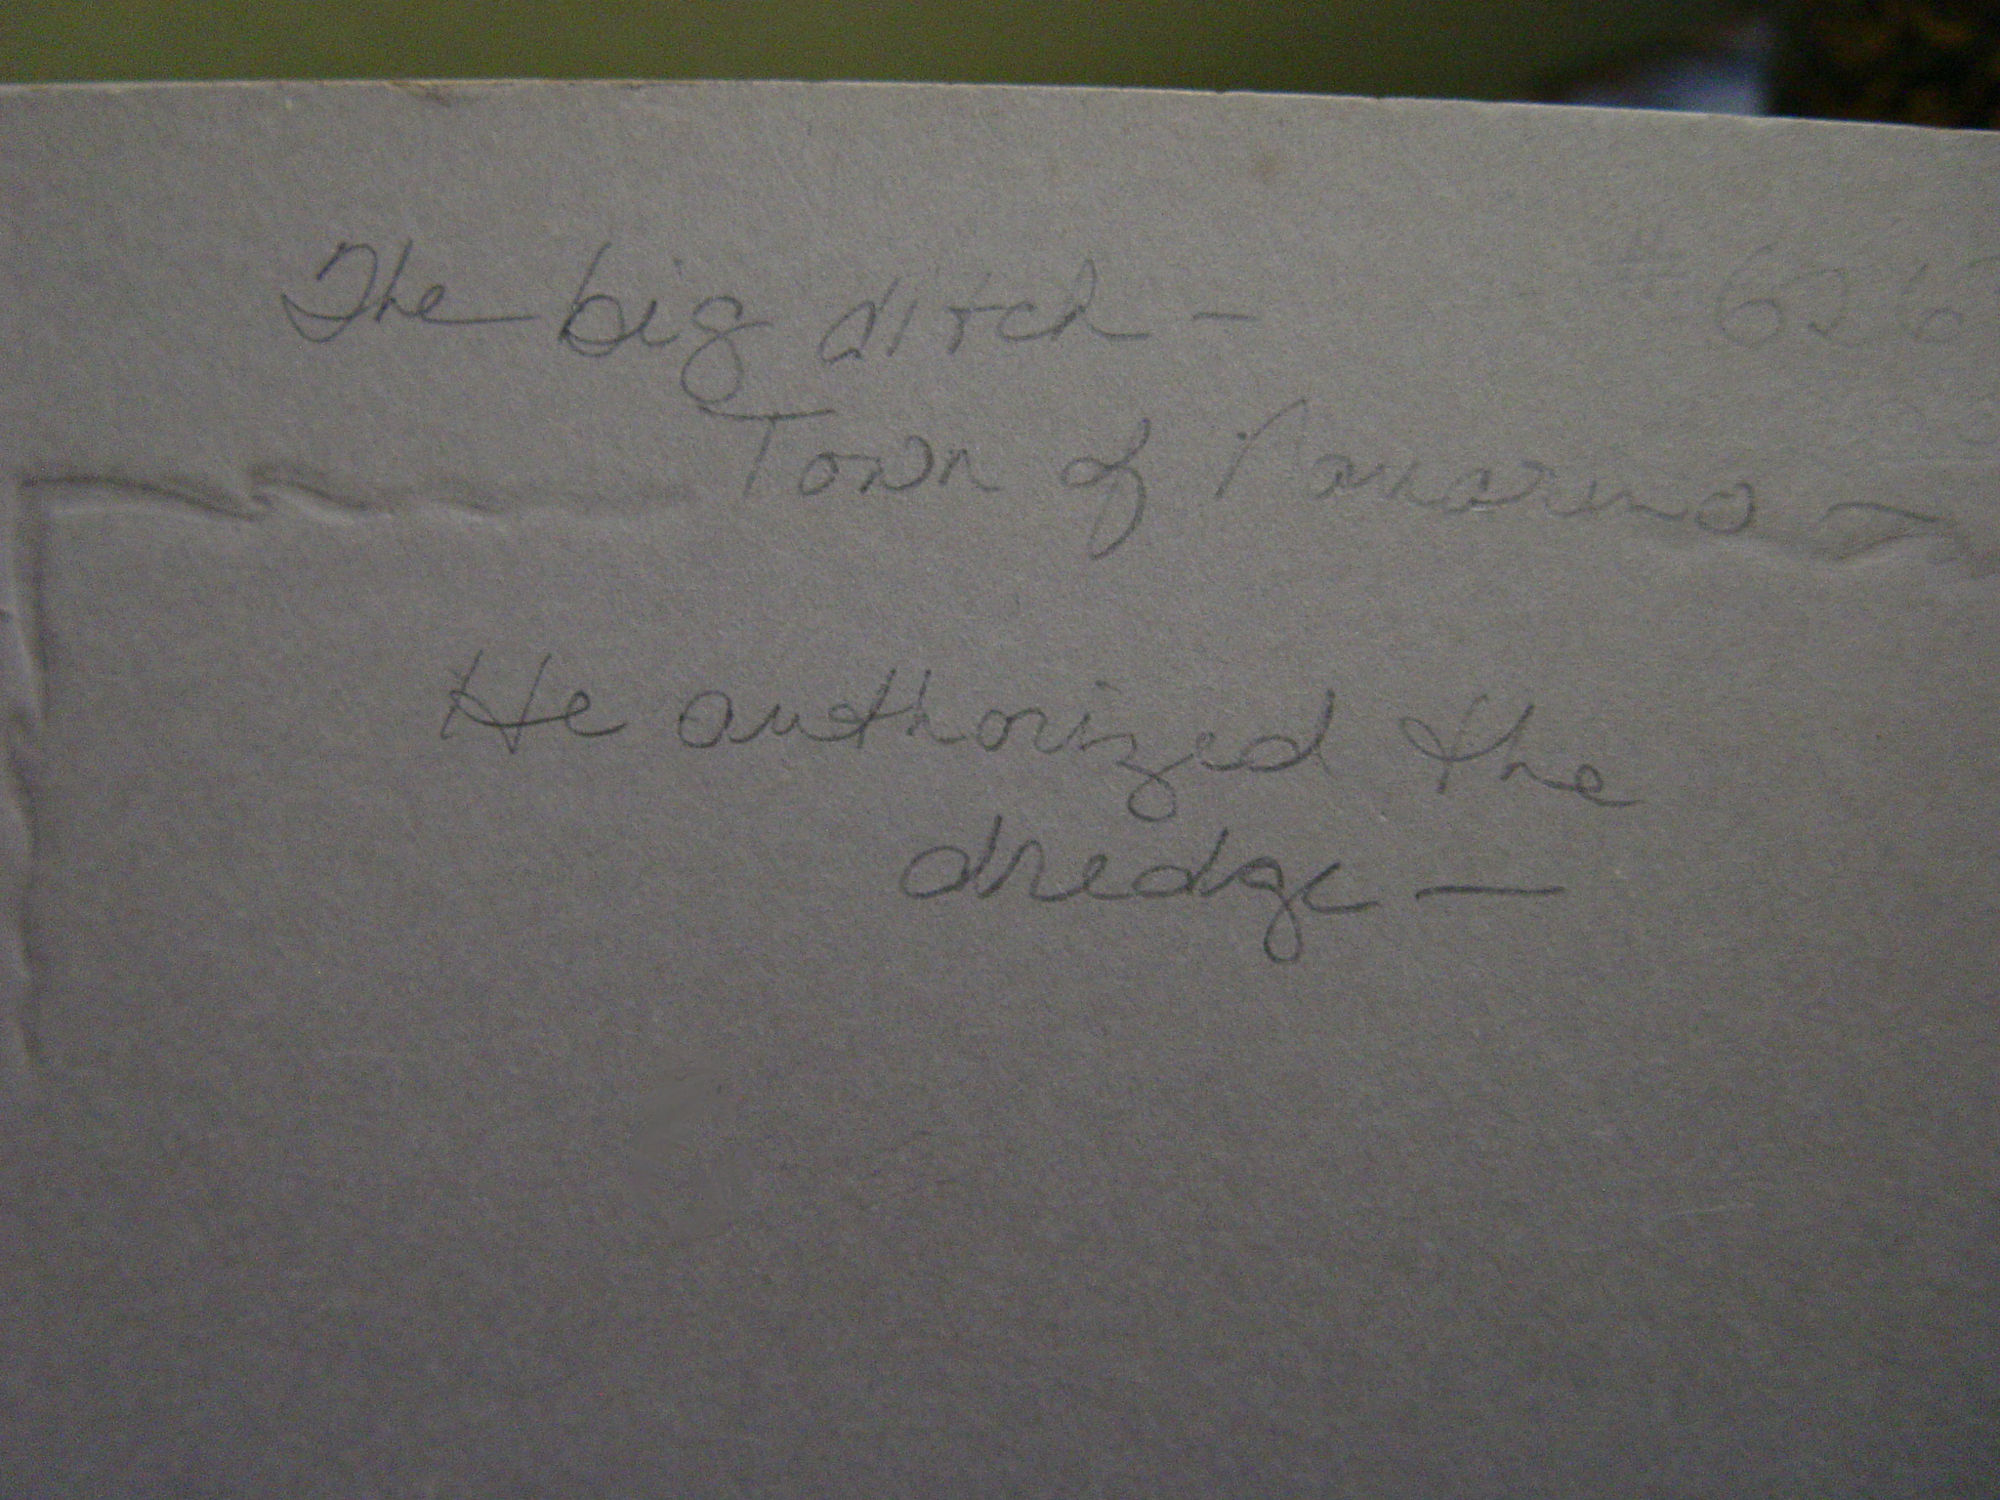 The big ditch -
# 626
Town of Navarino -
He authorized the
dredge —